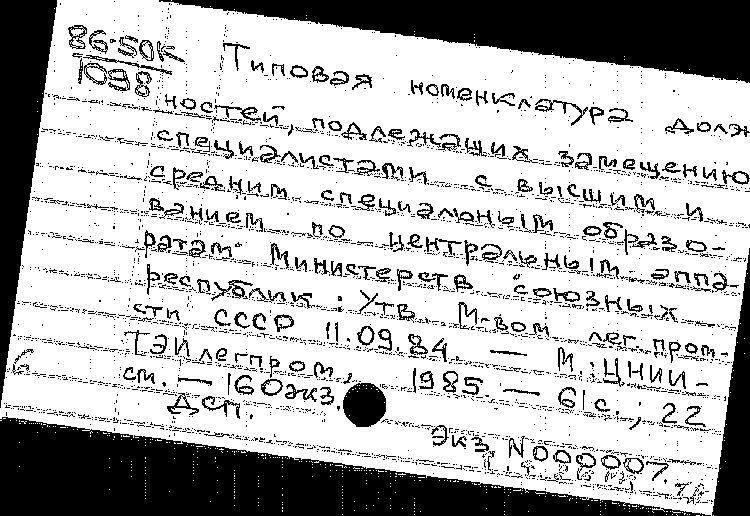 86-50К
1098
Типовая номенклатура долж
ностей, подлежащих замещению
специалистами с высшим и
средним специальным образо-
ванием по центральным аппа-
ратам Министерств союзных
республик: Утв. М-вом лег. пром-
сти СССР 11.09.84. — М.: ЦНИИ-
ТЭИлегпром, 1985. — 61 с.; 22
см. — 160 экз.
ДСП.
Экз. N000007.